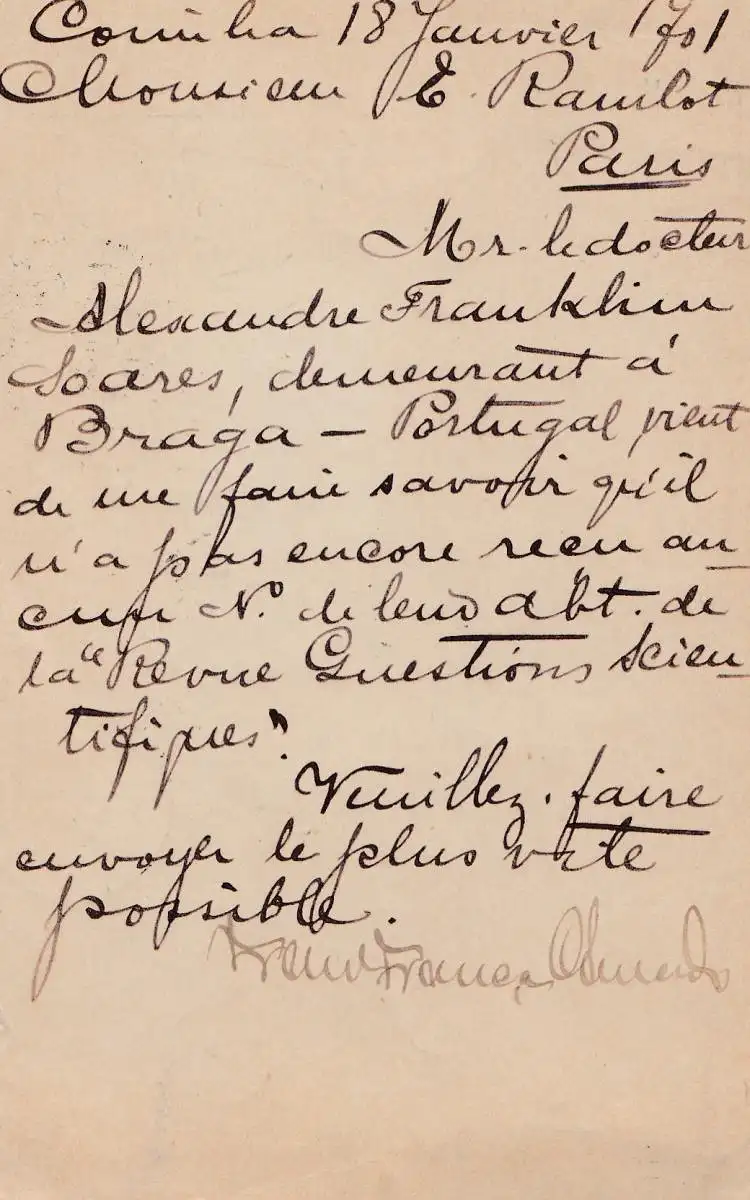 Coimbra 18 Janvier 1901
Monsieur E. Ramlot
Paris
Mr. le docteur
Alexandre Franklim
Soares, demeurant à
Braga – Portugal, vient
de me faire savoir qu'il
n'a pas encore reçu au-
cun N.º de leur abt. de
la "Revue Questions Scien-
tifiques".
Veuillez. faire
envoyer le plus vite
possible.
França